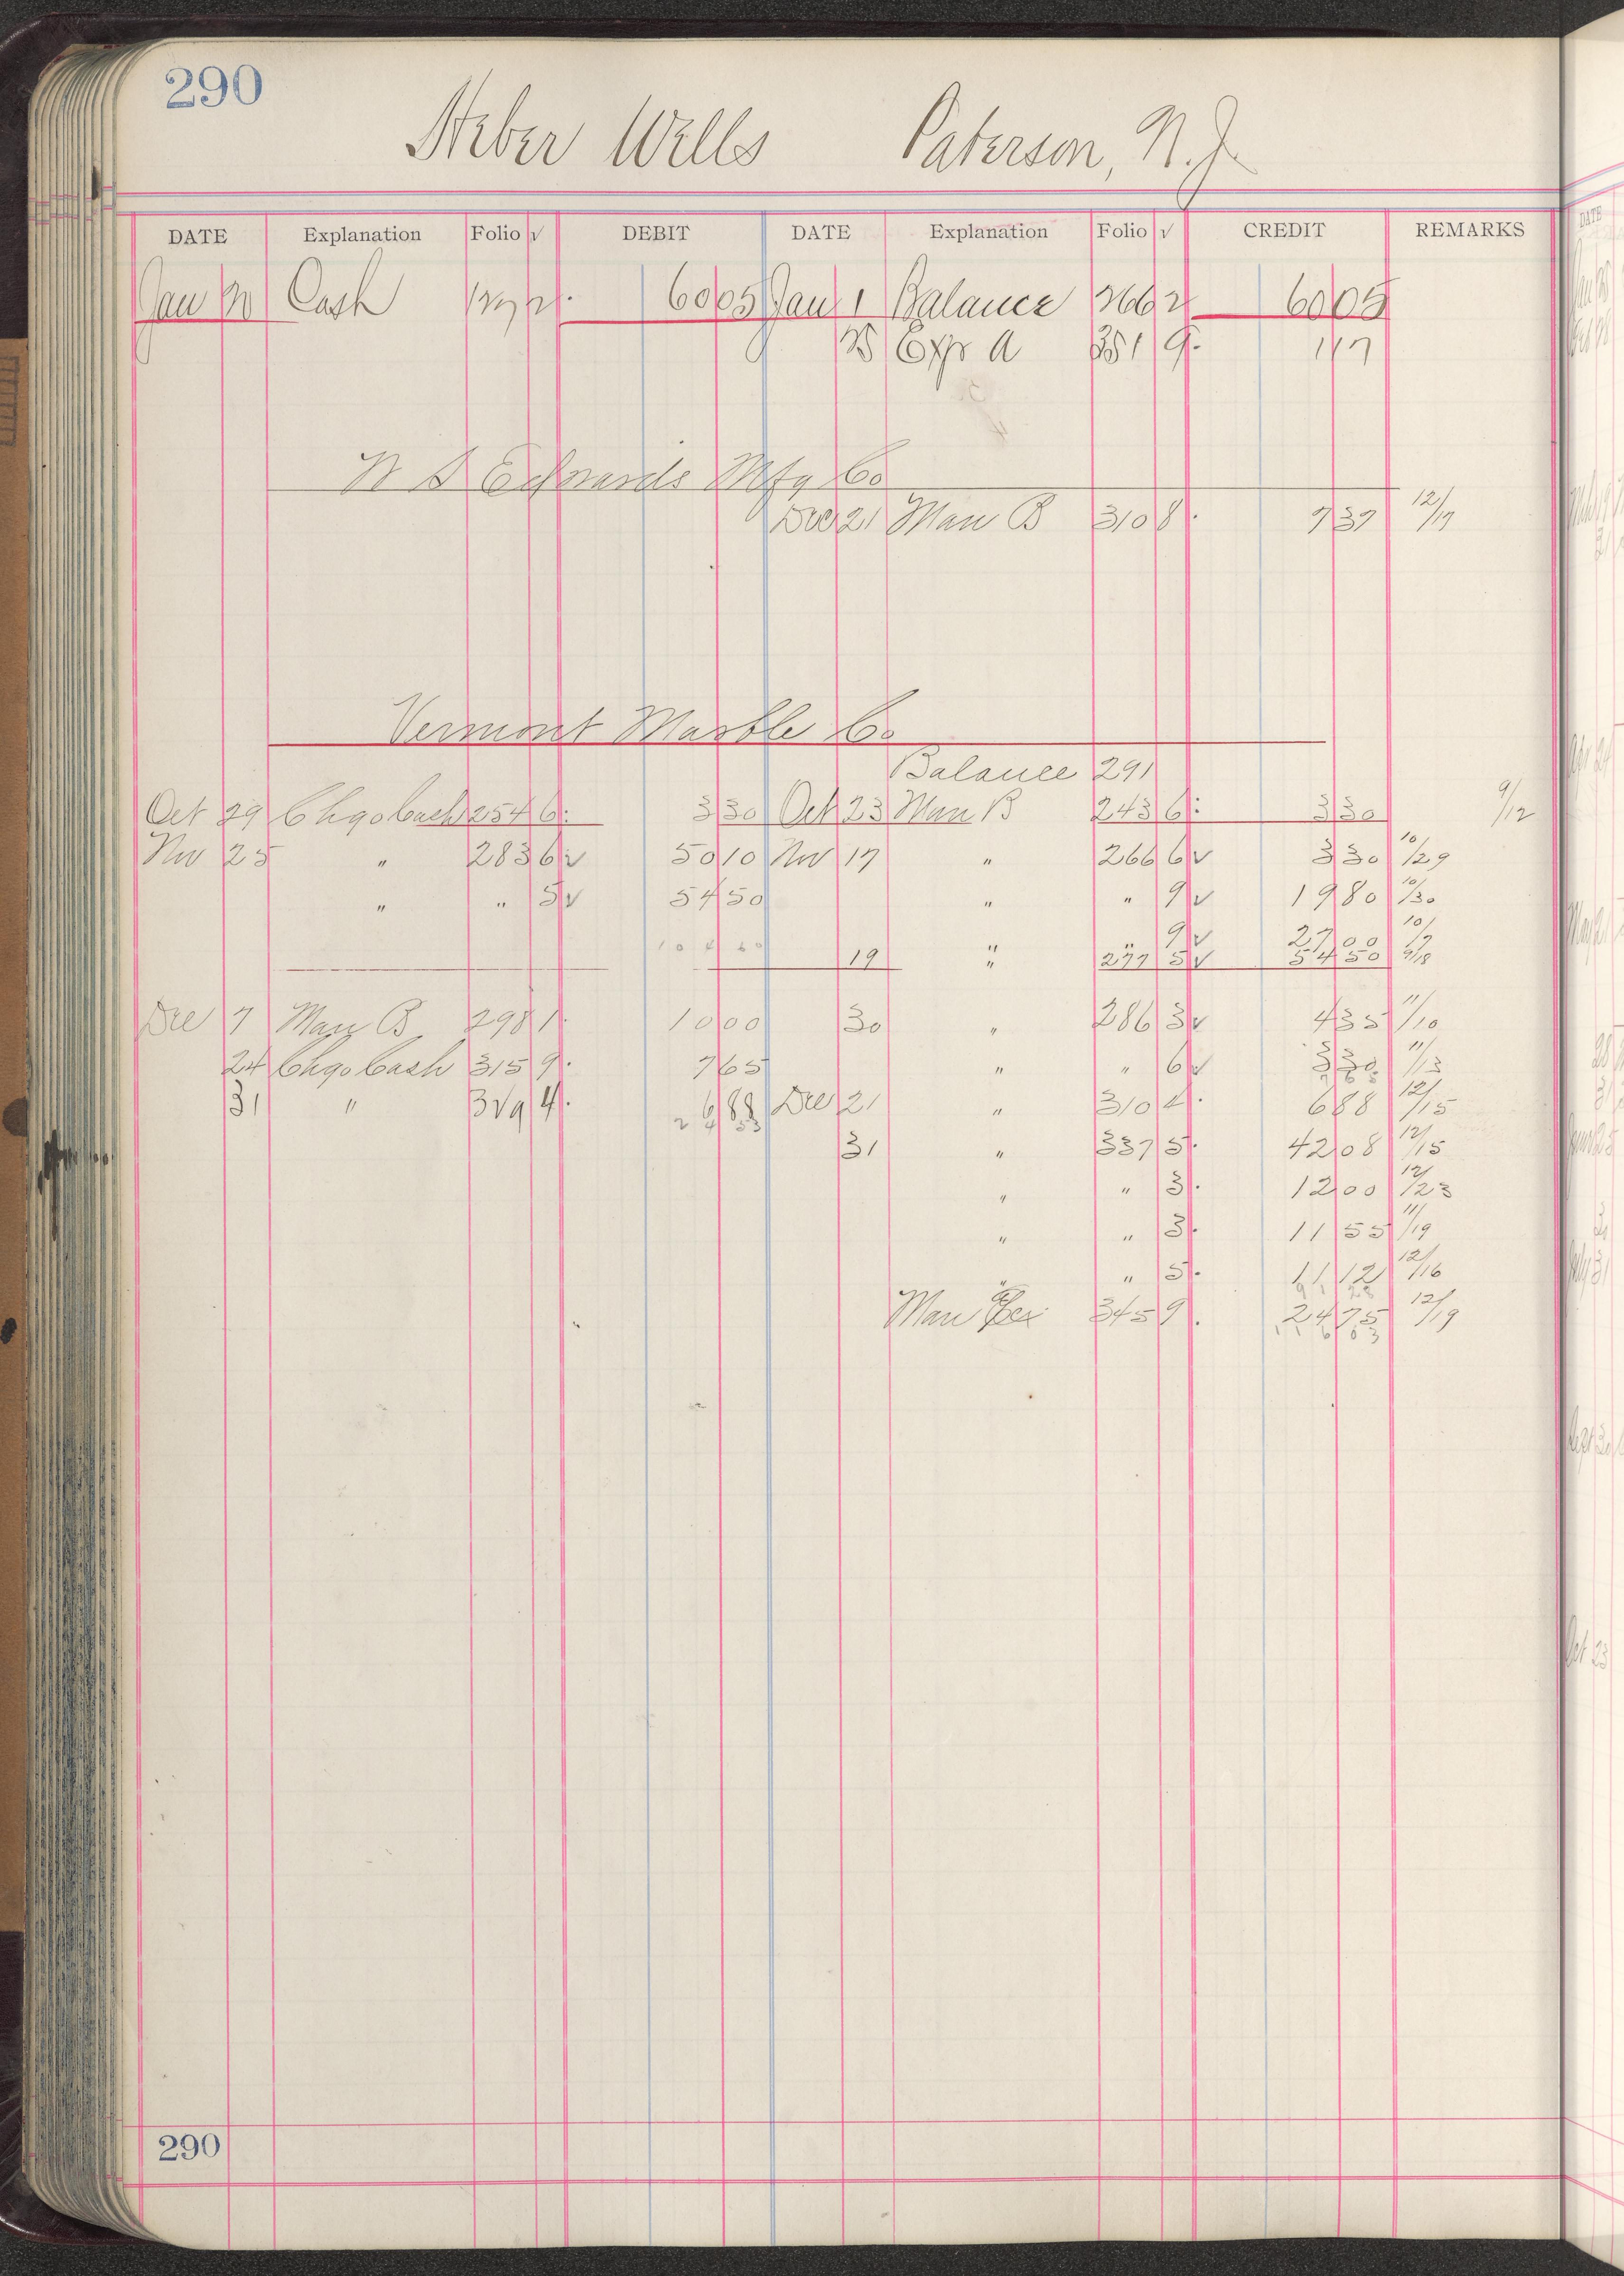 290
Heber Wells Paterson, N.J.
DATE Explanation Folio √ DEBIT DATE Explanation Folio √ CREDIT REMARKS
Jan Cash 60 05 Jan 1 Balance 266 2 60 05
25 Expr A 351 9. 1 17
Edwards Mfg Co
Dec 21 Man B 310 8. 7 37 12/17
Vermont Marble Co
Balance 291
Oct 29 Chgo Cash 254 6: 3 30 Oct 23 Man B 243 6: 3 30 9/12
Nov 25 " 283 6 v 50 10 Nov 17 " 266 6 v 3 30 10/29
" " 5 v 54 50 " " 9 v 19 80 10/30
104 60 " " 9 v 27 00
19 " 277 5 v 54 50
Dec 7 Man B 298 1. 10 00 30 " 286 3 v 4 35 11/10
24 Chgo Cash 315 9. 7 65 " " 6 v 3 30 11/13
7 65
31 " 4. 6 88 Dec 21 " 310 4. 6 88 12/15
24 53
31 " 337 5. 42 08 12/15
" " 3. 12 00 12/23
" " 3. 11 55 11/19
" " 5. 11 12 12/16
91 28
Man 345 9. 24 75 12/19
116 03
290